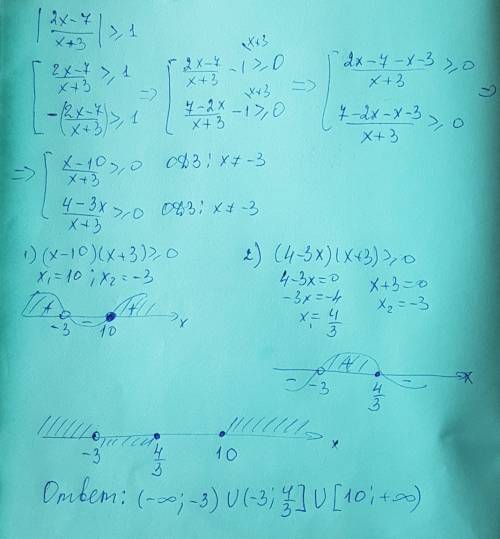 |(2x-7)/(x+3)| ⩾ 1
[ (2x-7)/(x+3) ⩾ 1 ⇒ [ (2x-7)/(x+3) - 1^{x+3} ⩾ 0 ⇒ [ (2x-7-x-3)/(x+3) ⩾ 0 ⇒
[ -((2x-7)/(x+3)) ⩾ 1 [ (7-2x)/(x+3) - 1^{x+3} ⩾ 0 [ (7-2x-x-3)/(x+3) ⩾ 0
⇒ [ (x-10)/(x+3) ⩾ 0 ОДЗ: x≠-3
[ (4-3x)/(x+3) ⩾ 0 ОДЗ: x≠-3
1) (x-10)(x+3)⩾0
x₁=10; x₂=-3
+ -3 - 10 + x
2) (4-3x)(x+3)⩾0
4-3x=0 x+3=0
-3x=-4 x₂=-3
x₁=4/3
- -3 + 4/3 - x
-3 4/3 10 x
Ответ: (-∞;-3) ∪ (-3; 4/3] ∪ [10; +∞)